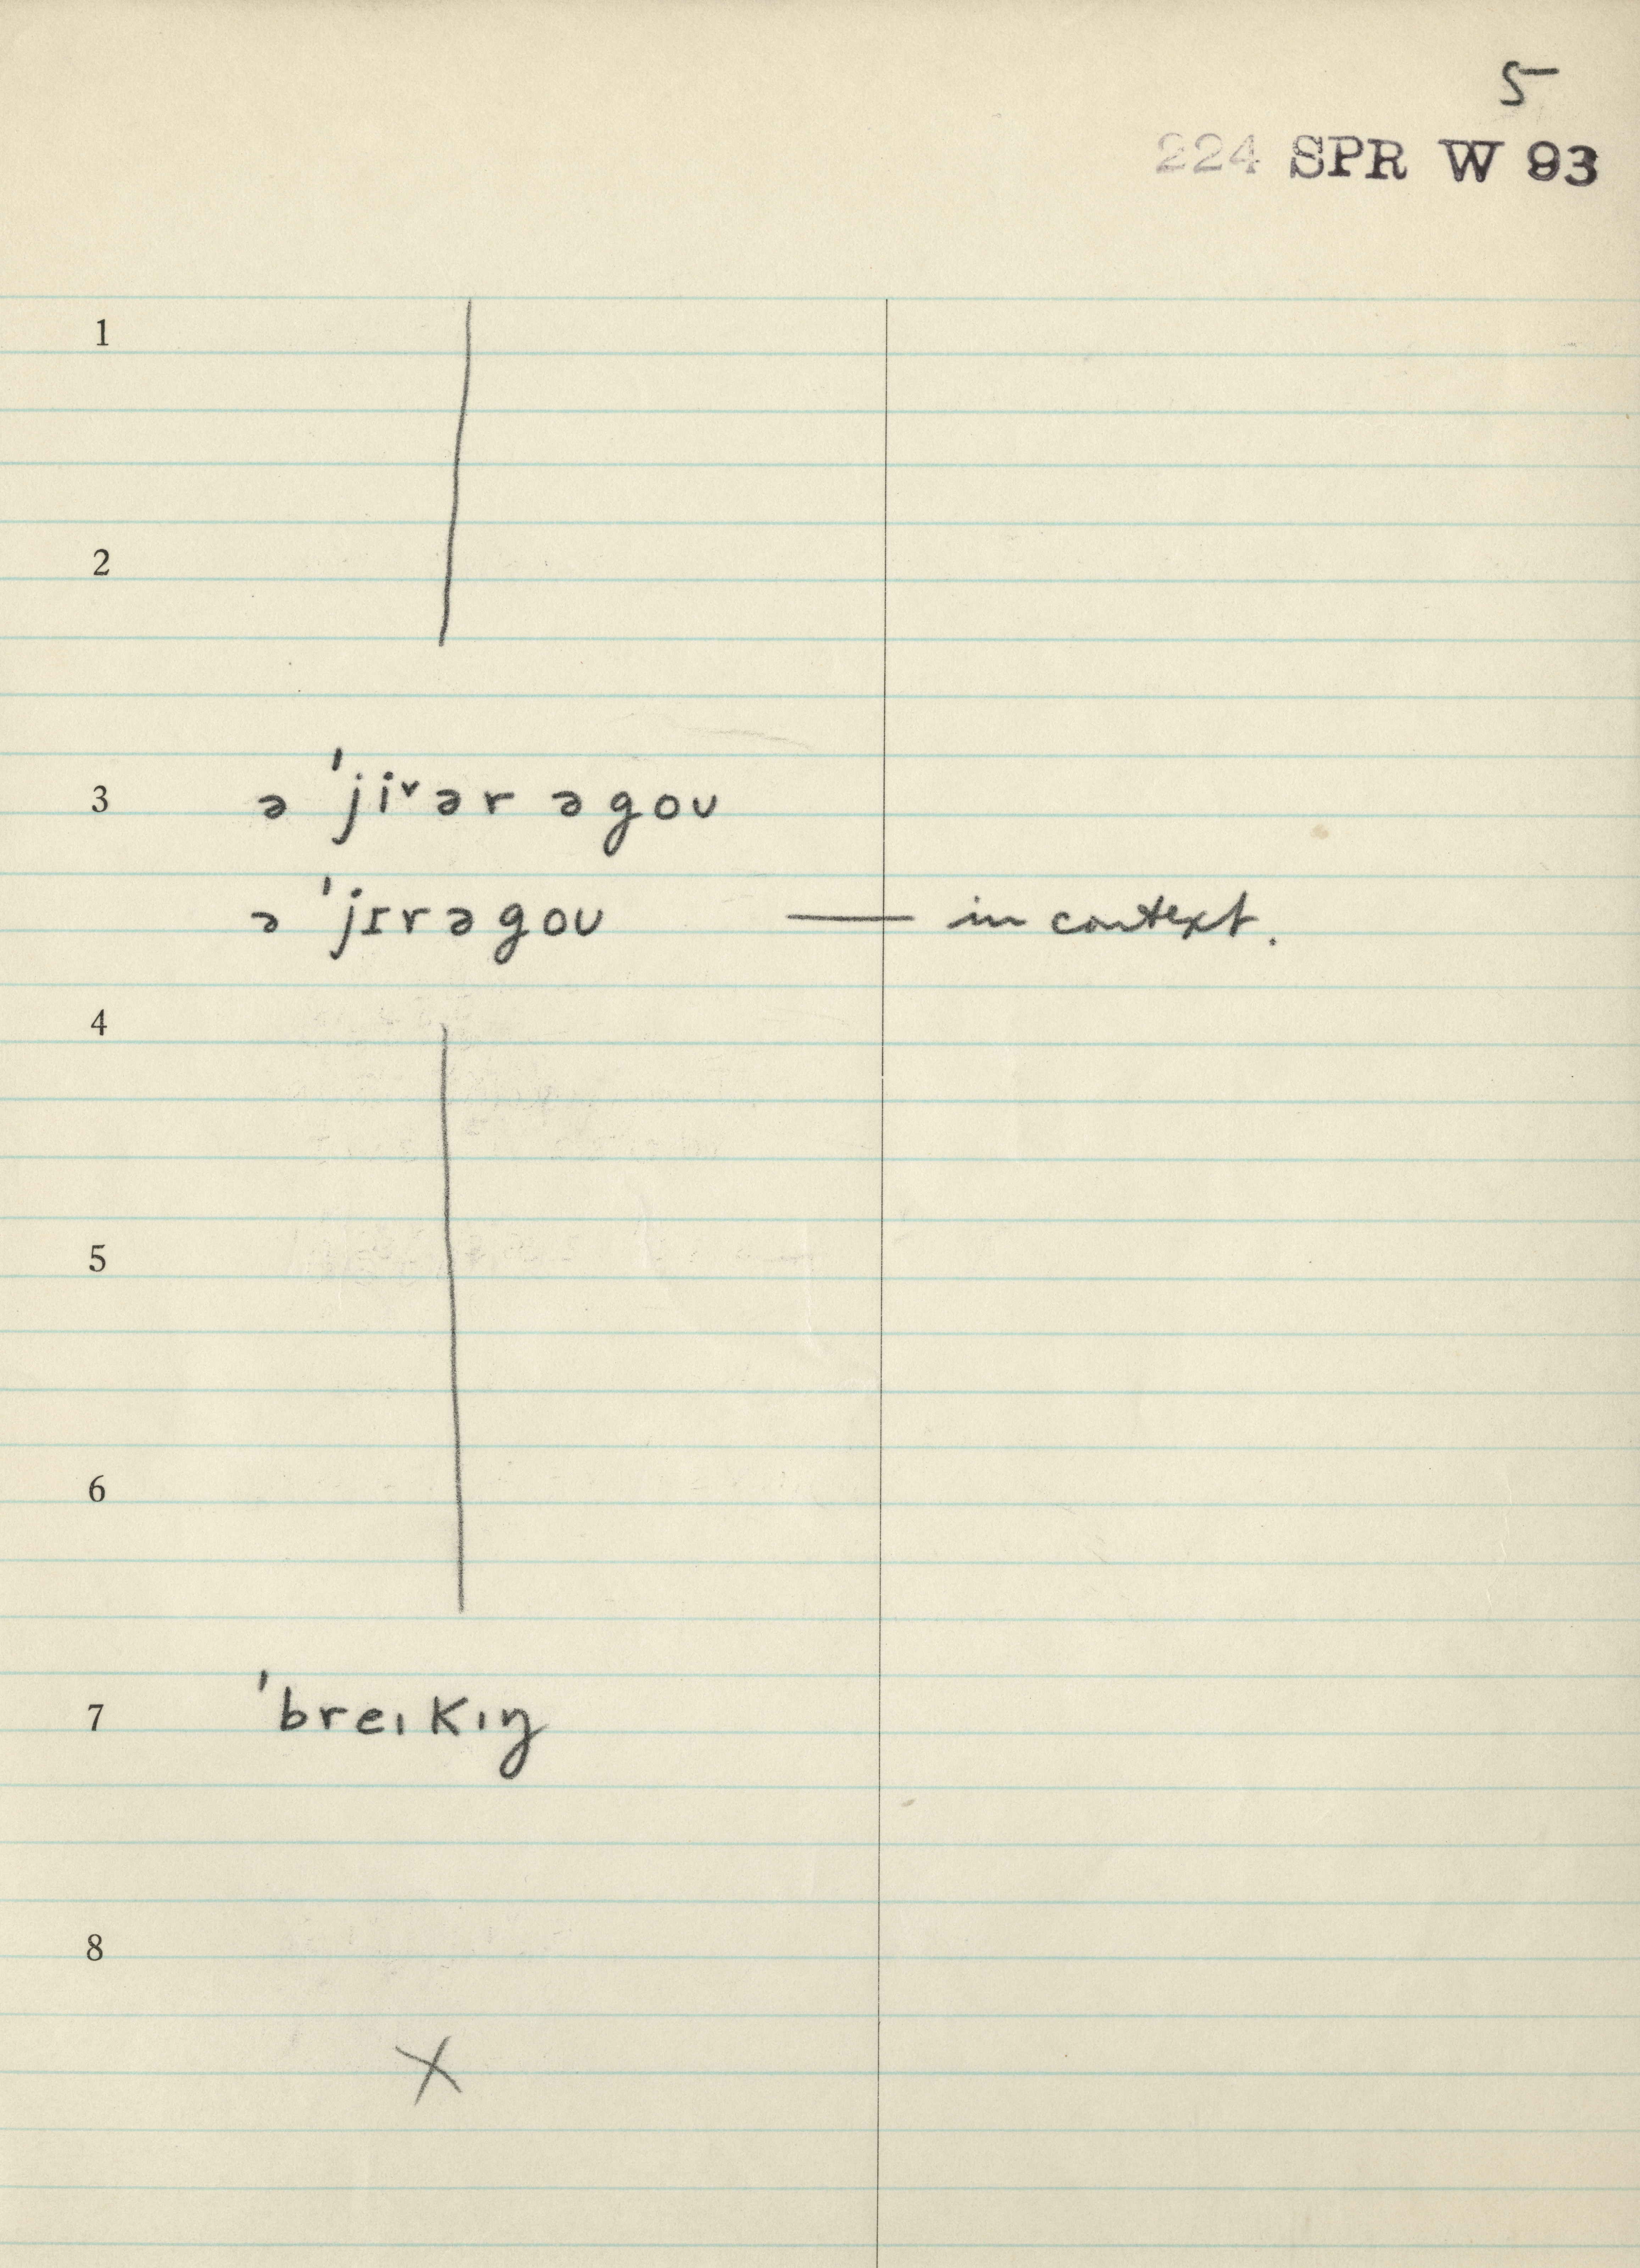 5
224 SPR W 93
1
2
3 ə ˈjiˇər əgoʋ
ə ˈjɪrəgoʋ — in context.
4
5
6
7 ˈbreıkıŋ
8
X